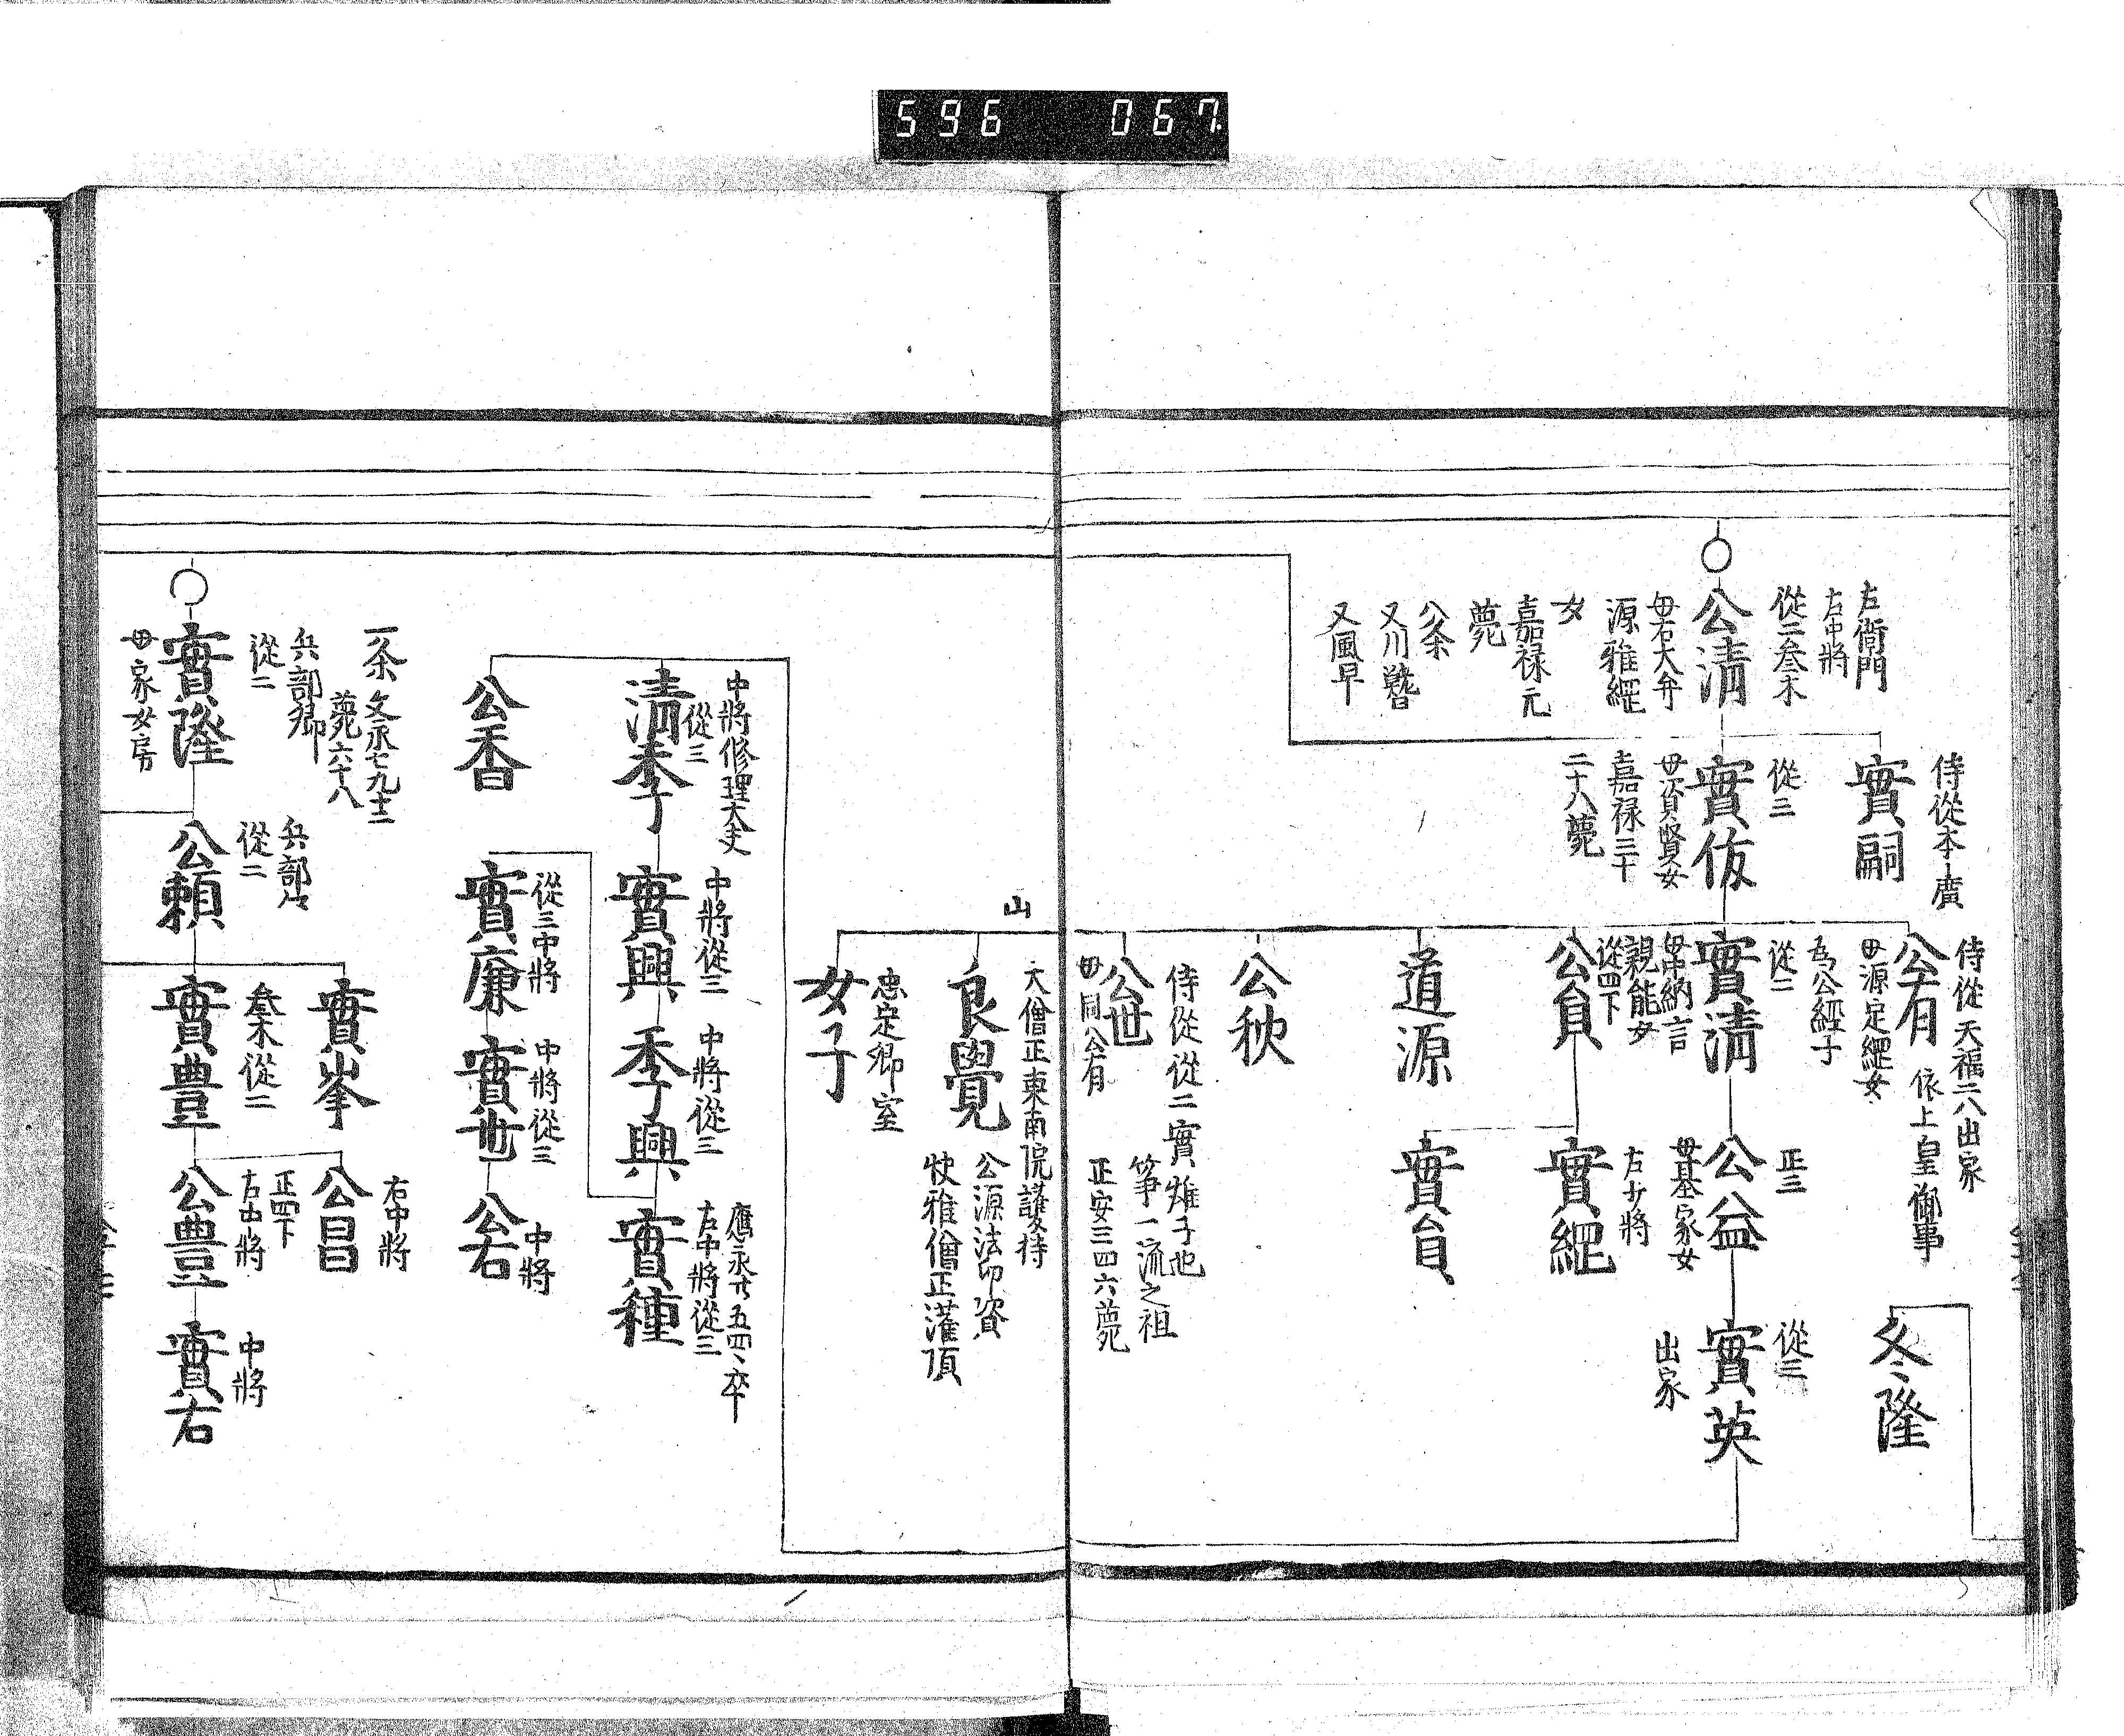 596 067
左衛門
右中將
從二叁木
公清
母右大弁
源雅經
女
嘉禄元
薨
八条
又風早
侍從本廣
實嗣
從三
實俊
母資賢女
嘉禄三十
二十八薨
侍從 天福二八出家
公有
依上皇御事
母源定經女
為公經子
從二
實清
母中納言
親能女
從四下
公貟
道源
公秋
侍從從二實雄子也
箏一流之祖
公世
母同公有
正安三四六薨
冬隆
正三
公益
母基家女
左少將
實經
實貟
從三
實英
出家
山
大僧正東南院護持
良覺
公源法印資
忠定卿室
女子
中將修理大夫
從三
清季
公香
中將從三
實興
從三中將
實廉
中將從三
季興
中將從三
實也
左中將從三
實種
中將
公右
一条
文永七九
薨六十八
兵部卿
從二
實隆
母家女房
兵部
從二
公頼
實峯
叁木從二
實豊
右中將
公昌
正四下
公豊
中將
實右